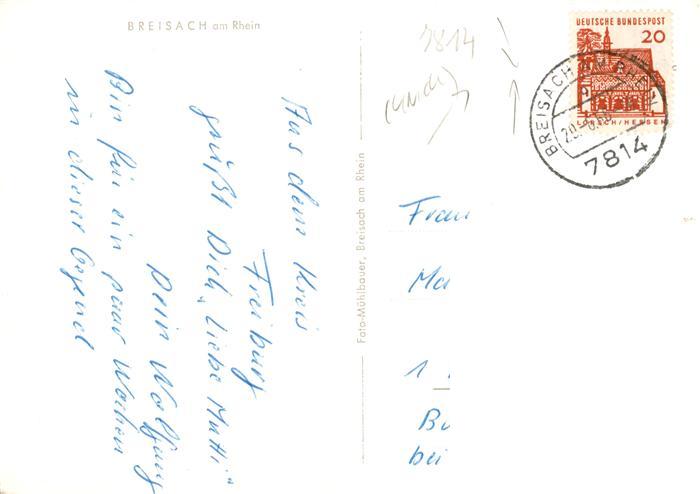 BREISACH am Rhein
Aus dem Kreis
Freiburg
grüßt Dich, Liebe Mutti"
Dein Wolfgang
Bin für ein paar Wochen
in dieser Gegend
Foto-Mühlbauer, Breisach am Rhein
7814
DEUTSCHE BUNDESPOST
20
LORSCH/HESSEN
BREISACH AM RHEIN
7814
Frau
Ma
1
Bu
bei